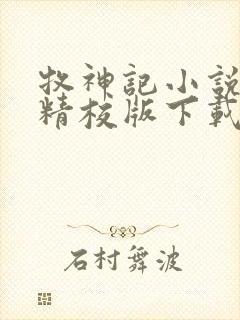 牧神記小說
精校版下載
石村舞波